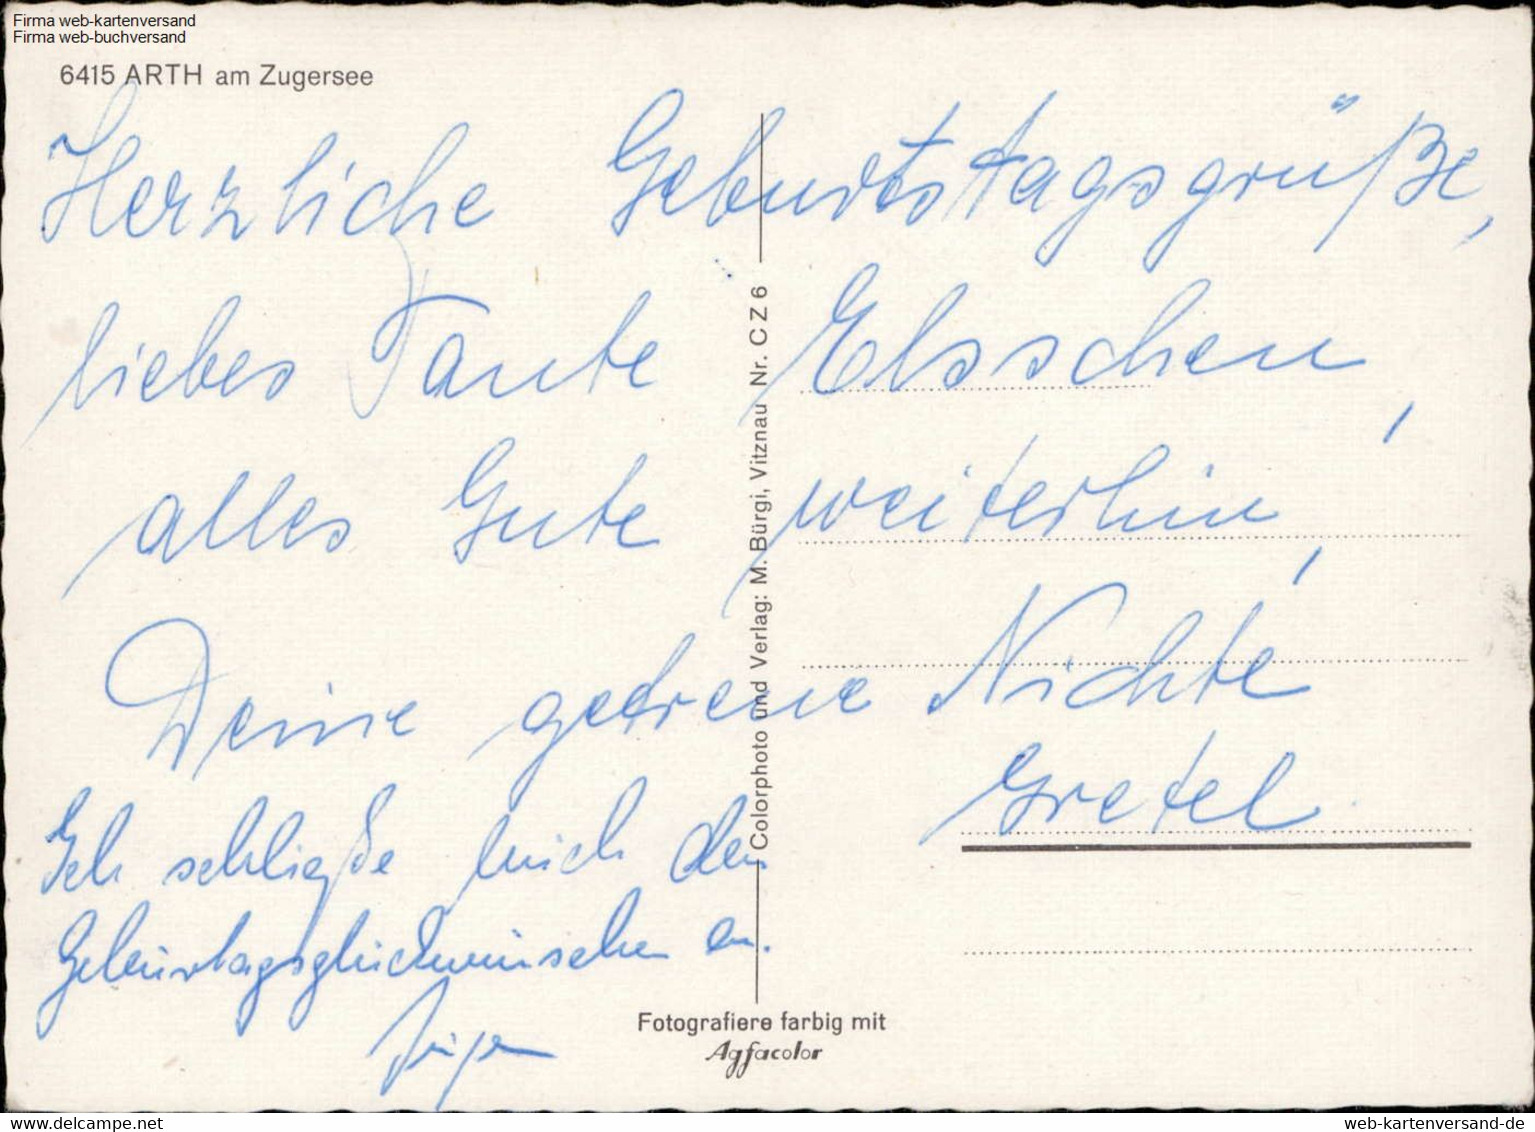 Firma web-kartenversand
Firma web-buchversand
6415 ARTH am Zugersee
Herzliche Geburtstagsgrüße,
liebes Tante Elsschen,
alles Gute weiterhin,
Deine getreue Nichte
Gretel
Ich schließe mich den
Geburtagsglückwünschen an.
Colorphoto und Verlag: M. Bürgi, Vitznau Nr. C Z 6
Fotografiere farbig mit
Agfacolor
www.delcampe.net
web-kartenversand-de